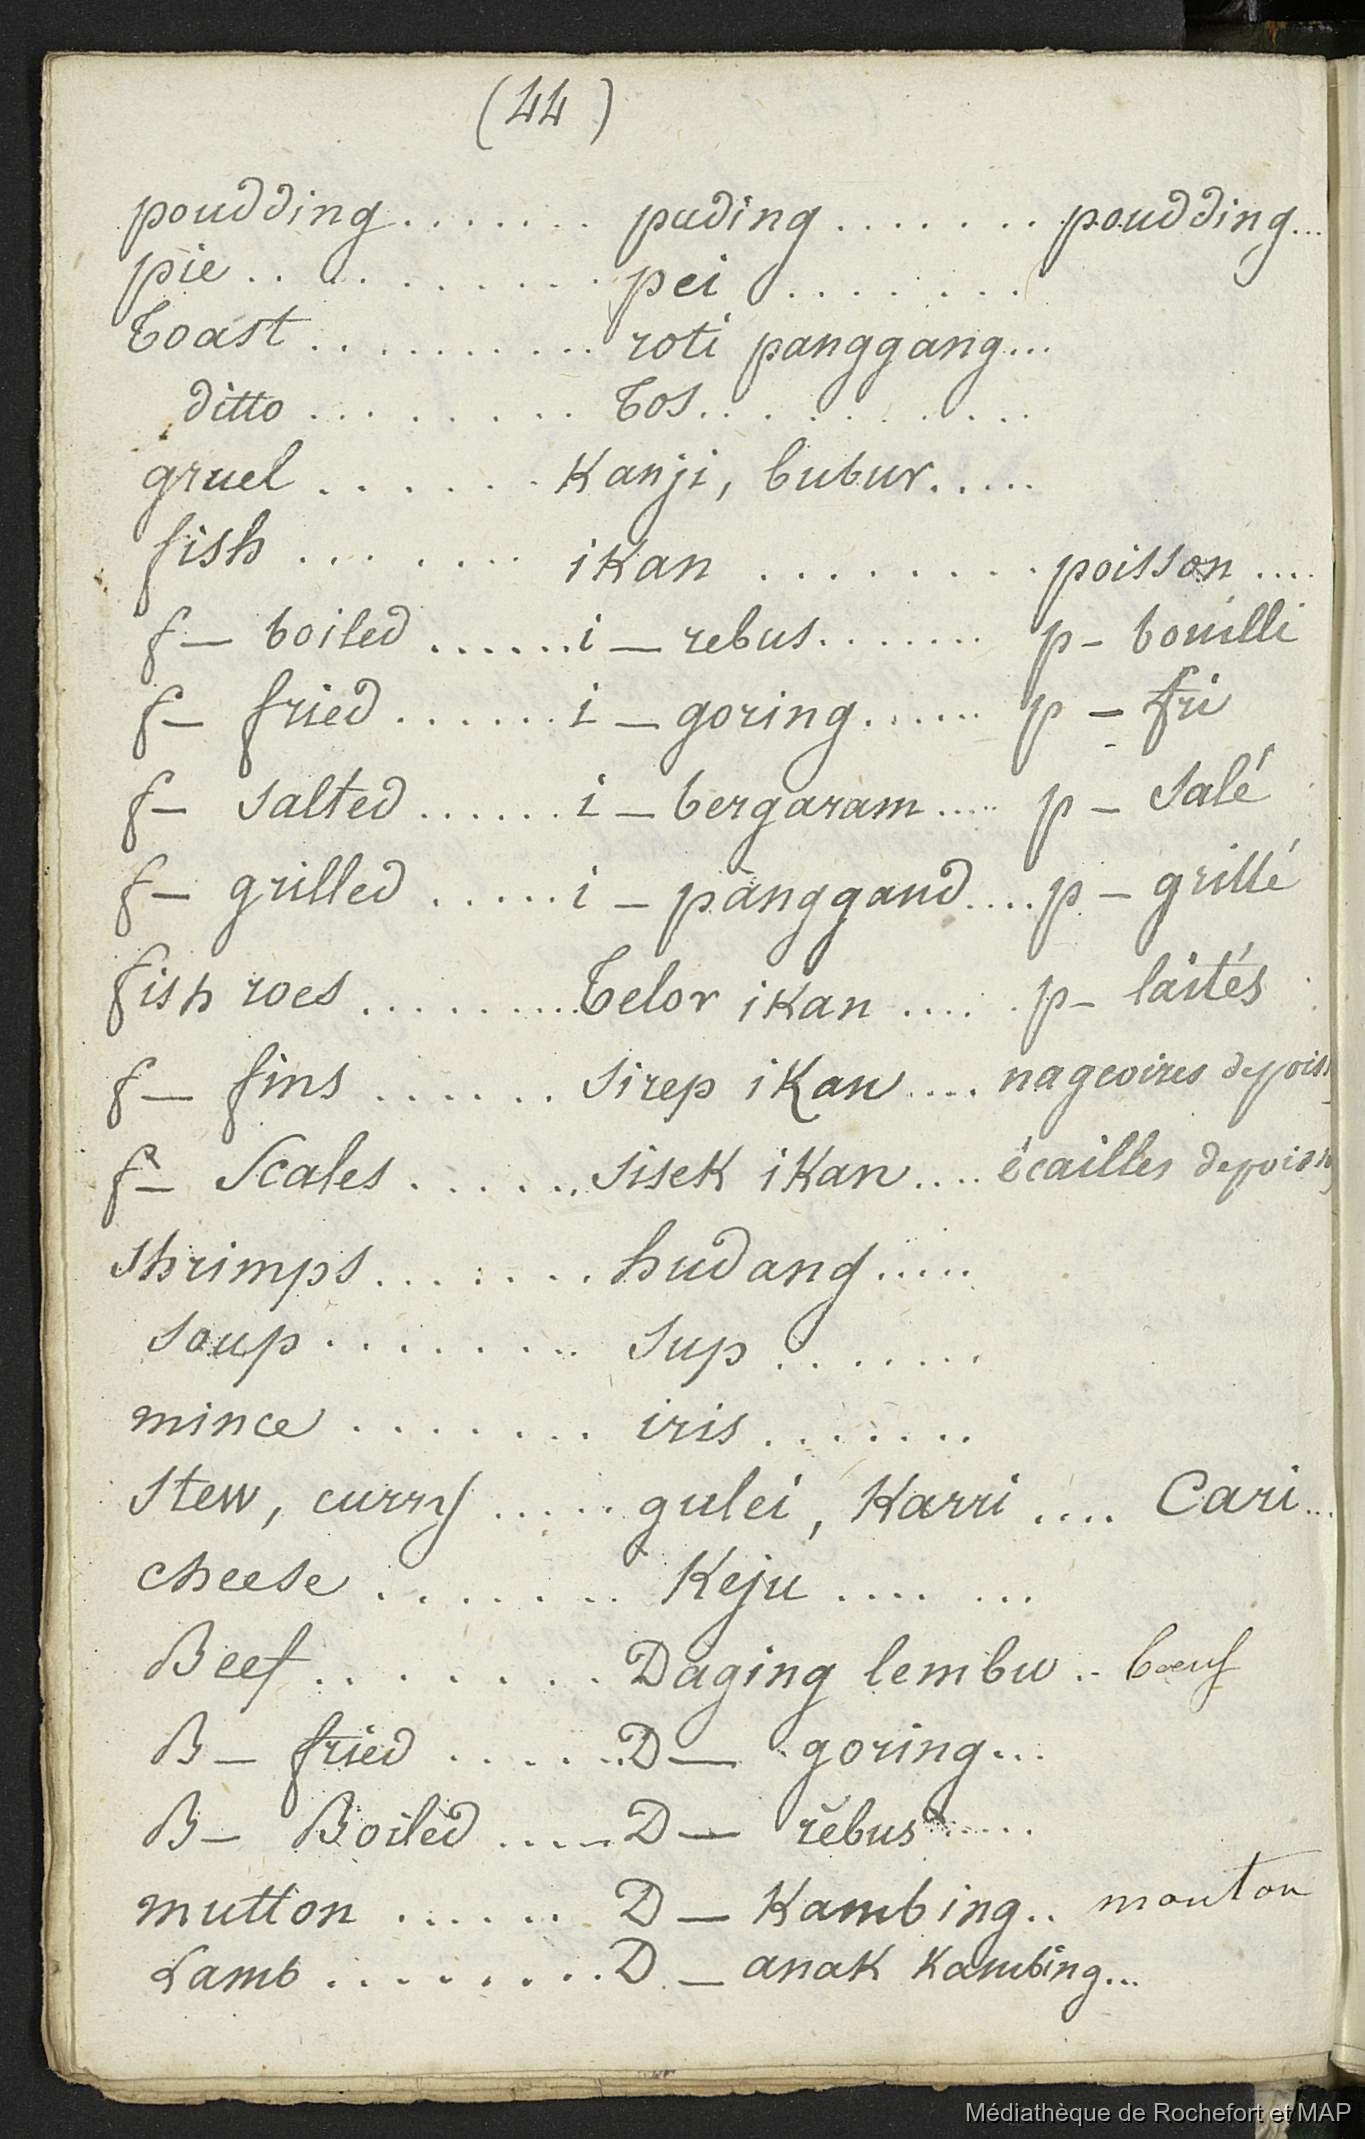 (44)
poudding ....... puding ....... poudding...
pie .......... pei .......
toast .......... roti panggang...
ditto ......... tos ..........
gruel ....... Kanji, bubur.....
fish ....... iKan ......... poisson ....
f— boiled .......i — rebus....... p- bouilli
f— fried ....... i — goring ...... p — fri
f— salted ...... i — bergaram ..... p — salé
f— grilled ..... i — panggand .... p — grillé
fish roes ......... telor iKan .... p— laités
f— fins ...... sirep iKan .... nageoires de pois
f— Scales ...... siseK iKan .... écailles de poisn
shrimps ....... hudang .....
soup ........ sup .......
mince ....... iris .......
stew, curry ..... gulei, Karri .... Cari ...
cheese ....... Keju .... ...
Beef ....... Daging lembu .. bœuf
B— fried ...... D— goring...
B— Boiled ..... D— rĕbus .....
mutton ...... D— Kambing.. mouton
Lamb ......... D — anaK Kambing...
Médiathèque de Rochefort et MAP